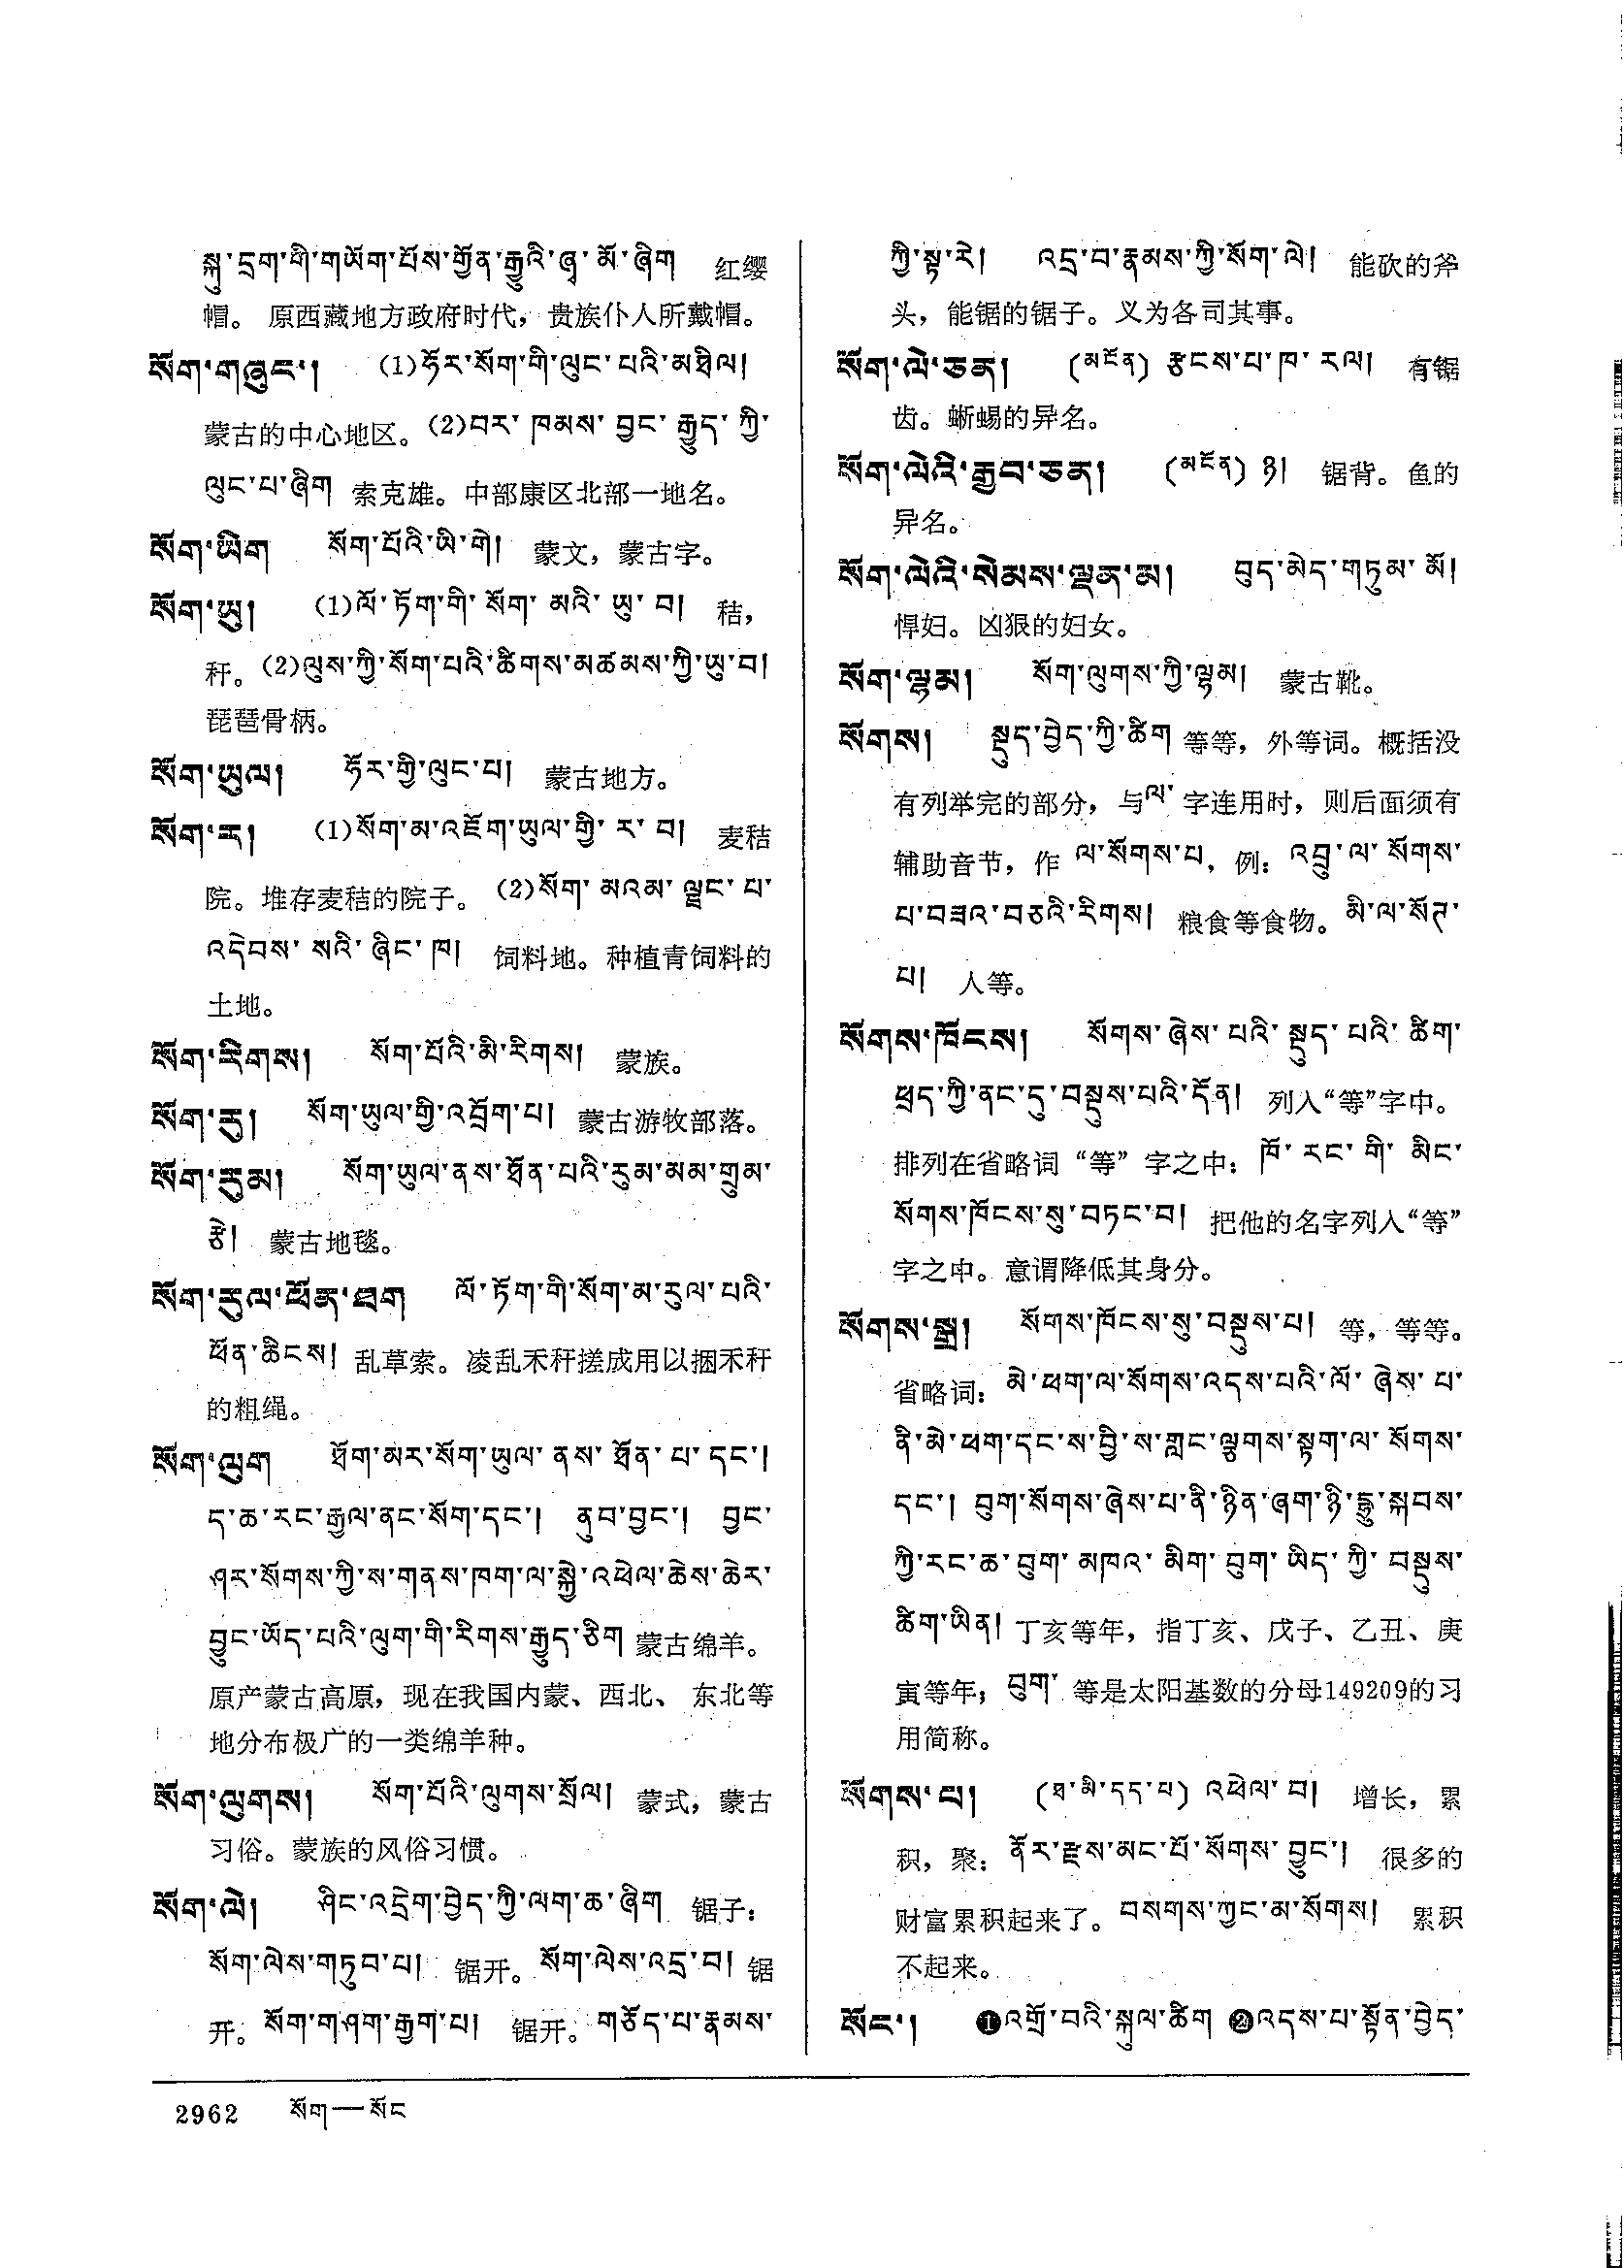 སྐུ་དྲག་གི་གཡོག་པོས་གྱོན་རྒྱུའི་ཞྭ་མོ་ཞིག 红缨
帽。原西藏地方政府时代，贵族仆人所戴帽。
སོག་གཞུང་། (1)ཧོར་སོག་གི་ལུང་པའི་མཐིལ།
蒙古的中心地区。(2)བར་ཁམས་བྱང་རྒྱུད་ཀྱི་
ལུང་པ་ཞིག 索克雄。中部康区北部一地名。
སོག་ཡིག སོག་པོའི་ཡི་གེ། 蒙文，蒙古字。
སོག་ཡུ། (1)ལོ་ཏོག་གི་སོག་མའི་ཡུ་བ། 秸，
秆。(2)ལུས་ཀྱི་སོག་པའི་ཚིགས་མཚམས་ཀྱི་ཡུ་བ།
琵琶骨柄。
སོག་ཡུལ། ཧོར་གྱི་ལུང་པ། 蒙古地方。
སོག་ར། (1)སོག་མ་འཇོག་ཡུལ་གྱི་ར་བ། 麦秸
院。堆存麦秸的院子。(2)སོག་མའམ་ལྗང་པ་
འདེབས་སའི་ཞིང་ཁ། 饲料地。种植青饲料的
土地。
སོག་རིགས། སོག་པོའི་མི་རིགས། 蒙族。
སོག་རུ། སོག་ཡུལ་གྱི་འབྲོག་པ། 蒙古游牧部落。
སོག་རུམ། སོག་ཡུལ་ནས་ཐོན་པའི་རུམ་མམ་གྲུམ་
རྩེ། 蒙古地毯。
སོག་རུལ་ཕོན་ཐག ལོ་ཏོག་གི་སོག་མ་རུལ་པའི་
ཕོན་ཆིངས། 乱草索。凌乱禾秆搓成用以捆禾秆
的粗绳。
སོག་ལུག ཐོག་མར་སོག་ཡུལ་ནས་ཐོན་པ་དང་།
ད་ཆ་རང་རྒྱལ་ནང་སོག་དང་། ནུབ་བྱང་། བྱང་
ཤར་སོགས་ཀྱི་ས་གནས་ཁག་ལ་སྐྱེ་འཕེལ་ཆེས་ཆེར་
བྱུང་ཡོད་པའི་ལུག་གི་རིགས་རྒྱུད་ཅིག 蒙古绵羊。
原产蒙古高原，现在我国内蒙、西北、东北等
地分布极广的一类绵羊种。
སོག་ལུགས། སོག་པོའི་ལུགས་སྲོལ། 蒙式，蒙古
习俗。蒙族的风俗习惯。
སོག་ལེ། ཤིང་འདྲེག་བྱེད་ཀྱི་ལག་ཆ་ཞིག 锯子：
སོག་ལེས་གཏུབ་པ། 锯开。སོག་ལེས་འདྲ་བ། 锯
开。སོག་གཤག་རྒྱག་པ། 锯开。གཅོད་པ་རྣམས་
ཀྱི་སྟ་རེ། འདྲ་བ་རྣམས་ཀྱི་སོག་ལེ། 能砍的斧
头，能锯的锯子。义为各司其事。
སོག་ལེ་ཅན། (མངོན) རྩངས་པ་ཁ་རལ། 有锯
齿。蜥蜴的异名。
སོག་ལེའི་རྒྱབ་ཅན། (མངོན) ཉ། 锯背。鱼的
异名。
སོག་ལེའི་སེམས་ལྡན་མ། བུད་མེད་གཏུམ་མོ།
悍妇。凶狠的妇女。
སོག་ལྷམ། སོག་ལུགས་ཀྱི་ལྷམ། 蒙古靴。
སོགས། སྡུད་བྱེད་ཀྱི་ཚིག 等等，外等词。概括没
有列举完的部分，与ལ་字连用时，则后面须有
辅助音节，作 ལ་སོགས་པ，例：འབྲུ་ལ་སོགས་
པ་བཟའ་བཅའི་རིགས། 粮食等食物。མི་ལ་སོཊ་
པ། 人等。
སོགས་ཁོངས། སོགས་ཞེས་པའི་སྡུད་པའི་ཚིག་
ཕྲད་ཀྱི་ནང་དུ་བསྡུས་པའི་དོན། 列入“等”字中。
排列在省略词“等”字之中：ཁོ་རང་གི་མིང་
སོགས་ཁོངས་སུ་བཏང་བ། 把他的名字列入“等”
字之中。意谓降低其身分。
སོགས་སྒྲ། སོགས་ཁོངས་སུ་བསྡུས་པ། 等，等等。
省略词：མེ་ཕག་ལ་སོགས་འདས་པའི་ལོ་ཞེས་པ་
ནི་མེ་ཕག་དང་ས་བྱི་ས་གླང་ལྕགས་སྟག་ལ་སོགས་
དང་། བུག་སོགས་ཞེས་པ་ནི་ཉིན་ཞག་ཉི་དྷྲུ་སྐབས་
ཀྱི་རང་ཆ་བུག་མཁའ་མིག་བུག་ཡིད་ཀྱི་བསྡུས་
ཚིག་ཡིན། 丁亥等年，指丁亥、戊子、乙丑、庚
寅等年；བུག་ 等是太阳基数的分母149209的习
用简称。
སོགས་པ། (ཐ་མི་དད་པ) འཕེལ་བ། 增长，累
积，聚：ནོར་རྫས་མང་པོ་སོགས་བྱུང་། 很多的
财富累积起来了。བསགས་ཀྱང་མ་སོགས། 累积
不起来。
སོང་། ❶འགྲོ་བའི་སྐུལ་ཚིག ❷འདས་པ་སྟོན་བྱེད་
2962 སོག — སོང